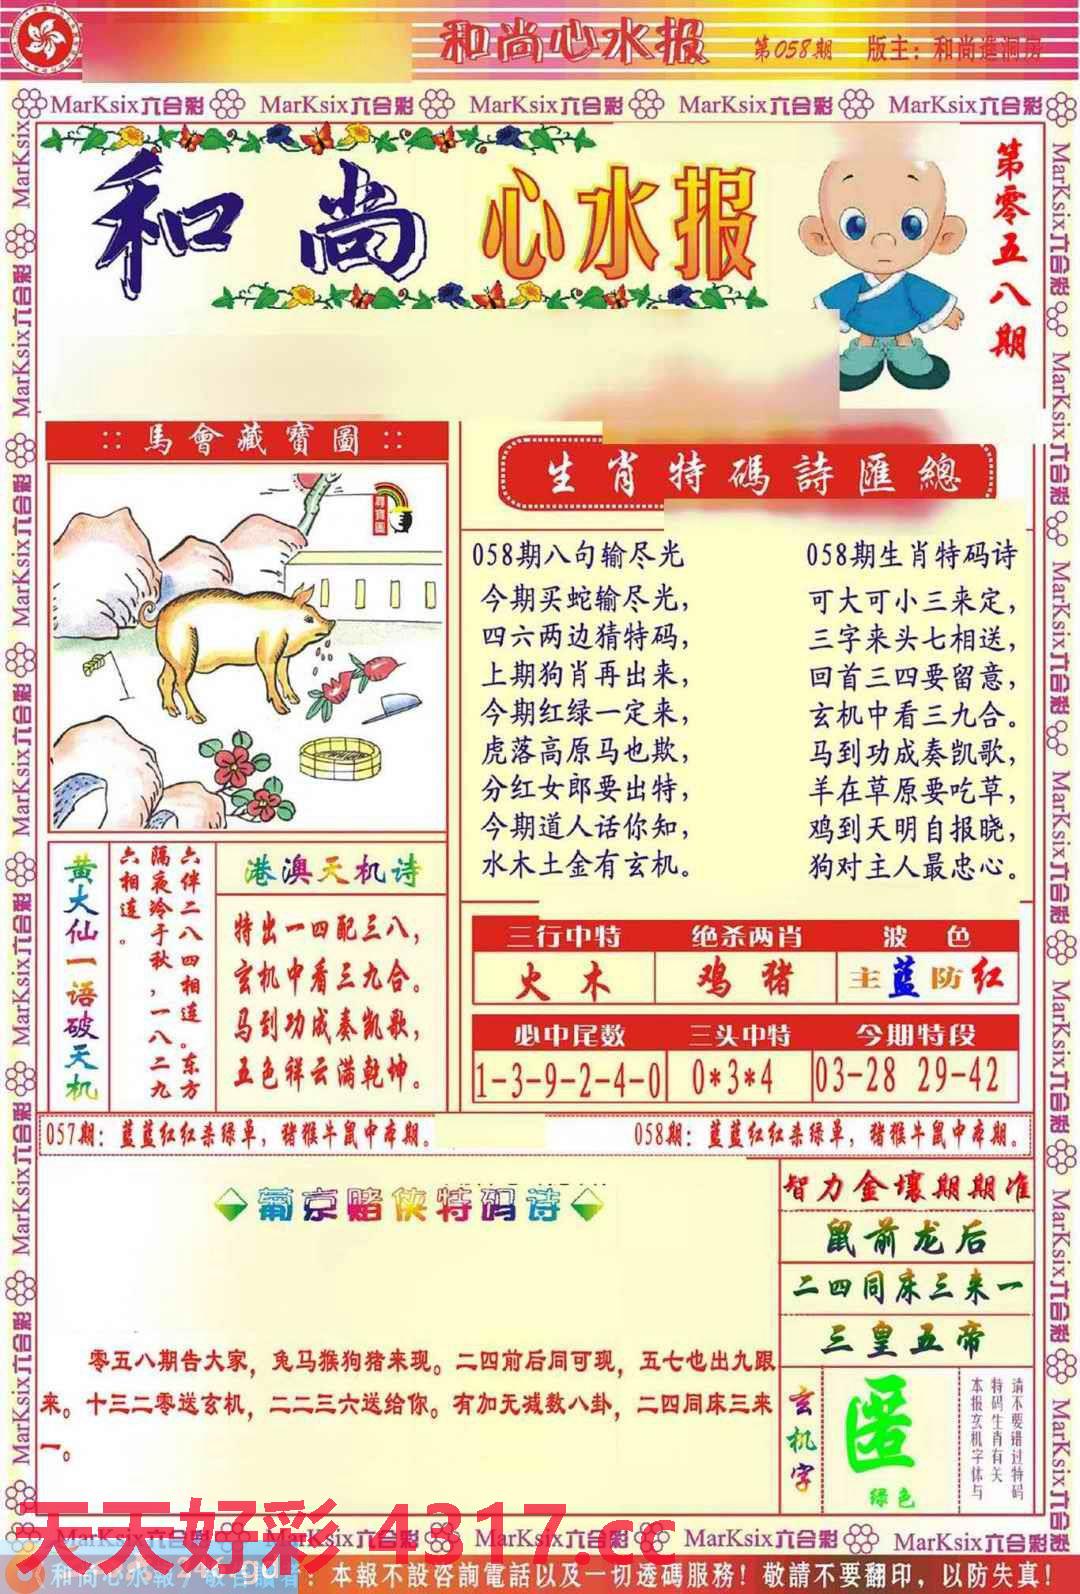 和尚心水报 第058期 版主：和尚進洞房
MarKsix六合彩 MarKsix六合彩 MarKsix六合彩 MarKsix六合彩 MarKsix六合彩
和尚心水报
第零五八期
:: 馬會藏寶圖 ::
尋寶圖
生肖特碼詩匯總
058期八句输尽光
今期买蛇输尽光，
四六两边猜特码，
上期狗肖再出来，
今期红绿一定来，
虎落高原马也欺，
分红女郎要出特，
今期道人话你知，
水木土金有玄机。
058期生肖特码诗
可大可小三来定，
三字来头七相送，
回首三四要留意，
玄机中看三九合。
马到功成奏凯歌，
羊在草原要吃草，
鸡到天明自报晓，
狗对主人最忠心。
黄大仙一语破天机
六伴二八四相连。东方
隔夜冷于秋，一八二九
六相连。
港澳天机诗
特出一四配三八，
玄机中看三九合。
马到功成奏凯歌，
五色祥云满乾坤。
三行中特 绝杀两肖 波色
火木 鸡猪 主蓝防红
必中尾数 三头中特 今期特段
1-3-9-2-4-0 0*3*4 03-28 29-42
057期：蓝蓝红红杀绿单，猪猴牛鼠中本期。
058期：蓝蓝红红杀绿单，猪猴牛鼠中本期。
葡京赌侠特码诗
零五八期告大家，兔马猴狗猪来现。二四前后同可现，五七也出九跟
来。十三二零送玄机，二二三六送给你。有加无减数八卦，二四同床三来
一。
智力金壤期期准
鼠前龙后
二四同床三来一
三皇五帝
玄机字
匿
绿色
请不要错过特码
特码生肖有关
本报玄机字体与
天天好彩 4317.cc
MarKsix六合彩 MarKsix六合彩 MarKsix六合彩 MarKsix六合彩 MarKsix六合彩
：本報不設咨詢電話以及一切透碼服務！敬請不要翻印，以防失真！